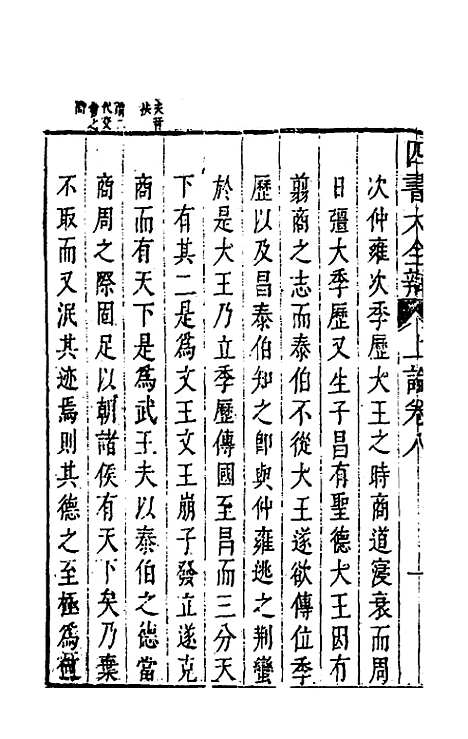 四書大全辯 上論卷八 一
次仲雍次季歷大王之時商道寖衰而周
日彊大季歷又生子昌有聖德大王因有
翦商之志而泰伯不從大王遂欲傳位季
歷以及昌泰伯知之卽與仲雍逃之荆蠻
於是大王乃立季歷傳國至昌而三分天
下有其二是為文王文王崩子發立遂克
商而有天下是為武王夫以泰伯之德當
商周之際固足以朝諸侯有天下矣乃棄
不取而又泯其迹焉則其德之至極為何
夫音
扶
際二
代交
會之
間